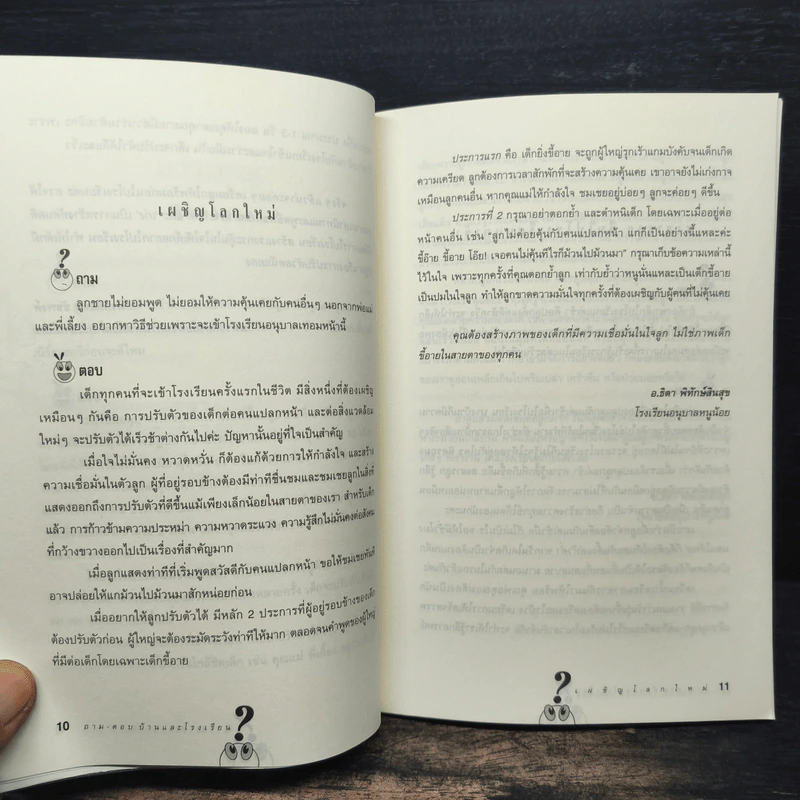 เผชิญโลกใหม่
?
ถาม
ลูกชายไม่ยอมพูด ไม่ยอมให้ความคุ้นเคยกับคนอื่นๆ นอกจากพ่อแม่
และพี่เลี้ยง อยากหาวิธีช่วยเพราะจะเข้าโรงเรียนอนุบาลเทอมหน้านี้
ตอบ
เด็กทุกคนที่จะเข้าโรงเรียนครั้งแรกในชีวิต มีสิ่งหนึ่งที่ต้องเผชิญ
เหมือนๆ กันคือ การปรับตัวของเด็กต่อคนแปลกหน้า และต่อสิ่งแวดล้อม
ใหม่ๆ จะปรับตัวได้เร็วช้าต่างกันไปค่ะ ปัญหานั้นอยู่ที่ใจเป็นสำคัญ
เมื่อใจไม่มั่นคง หวาดหวั่น ก็ต้องแก้ด้วยการให้กำลังใจ และสร้าง
ความเชื่อมั่นในตัวลูก ผู้ที่อยู่รอบข้างต้องมีท่าทีชื่นชมและชมเชยลูกในสิ่งที่
แสดงออกถึงการปรับตัวที่ดีขึ้นแม้เพียงเล็กน้อยในสายตาของเรา สำหรับเด็ก
แล้ว การก้าวข้ามความประหม่า ความหวาดระแวง ความรู้สึกไม่มั่นคงต่อสังคม
ที่กว้างขวางออกไปเป็นเรื่องที่สำคัญมาก
เมื่อลูกแสดงท่าทีที่เริ่มพูดสวัสดีกับคนแปลกหน้า ขอให้ชมเชยทันที
อาจปล่อยให้แกม้วนไปม้วนมาสักหน่อยก่อน
เมื่ออยากให้ลูกปรับตัวได้ มีหลัก 2 ประการที่ผู้อยู่รอบข้างของเด็ก
ต้องปรับตัวก่อน ผู้ใหญ่จะต้องระมัดระวังท่าทีให้มาก ตลอดจนคำพูดของผู้ใหญ่
ที่มีต่อเด็กโดยเฉพาะเด็กขี้อาย
10 ถาม-ตอบบ้านและโรงเรียน ?
ประการแรก คือ เด็กยิ่งขี้อาย จะถูกผู้ใหญ่รุกเร้าแกมบังคับจนเด็กเกิด
ความเครียด ลูกต้องการเวลาสักพักที่จะสร้างความคุ้นเคย เขาอาจยังไม่เก่งกาจ
เหมือนลูกคนอื่น หากคุณแม่ให้กำลังใจ ชมเชยอยู่บ่อยๆ ลูกจะค่อยๆ ดีขึ้น
ประการที่ 2 กรุณาอย่าตอกย้ำ และตำหนิเด็ก โดยเฉพาะเมื่ออยู่ต่อ
หน้าคนอื่น เช่น “ลูกไม่ค่อยคุ้นกับคนแปลกหน้า แกก็เป็นอย่างนี้แหละค่ะ
ขี้อ๊าย ขี้อาย โอ๊ย! เจอคนไม่คุ้นทีไรก็ม้วนไปม้วนมา” กรุณาเก็บข้อความเหล่านี้
ไว้ในใจ เพราะทุกครั้งที่คุณตอกย้ำลูก เท่ากับย้ำว่าหนูนั่นแหละเป็นเด็กขี้อาย
เป็นปมในใจลูก ทำให้ลูกขาดความมั่นใจทุกครั้งที่ต้องเผชิญกับผู้คนที่ไม่คุ้นเคย
คุณต้องสร้างภาพของเด็กที่มีความเชื่อมั่นในใจลูก ไม่ใช่ภาพเด็ก
ขี้อายในสายตาของทุกคน
อ.ธิดา พิทักษ์สินสุข
โรงเรียนอนุบาลหนูน้อย
? เผชิญโลกใหม่ 11